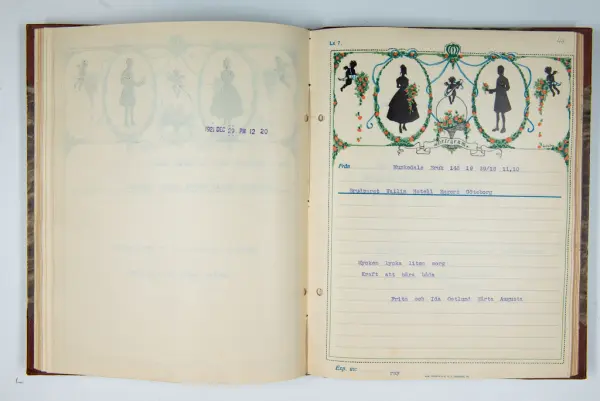 1921 DEC 29 PM 12 20
Lx 7.
Telegram
Från
Munkedals Bruk 142 19 29/12 11.10
Brudparet Wallin Hotell Eggers Göteborg
Mycken lycka liten sorg
Kraft att bära båda
Frith och Ida Östlund Märta Augusta
Exp. av: